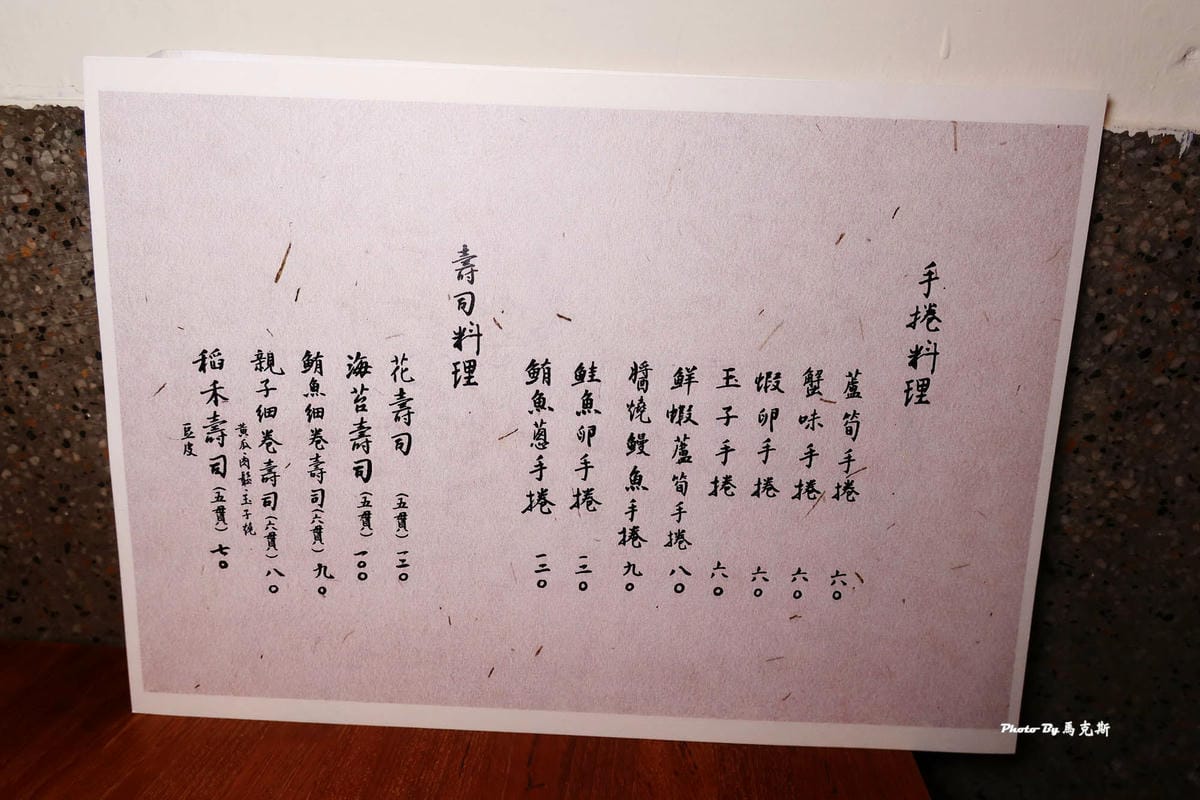 手捲料理
蘆筍手捲 六〇
蟹味手捲 六〇
蝦卵手捲 六〇
玉子手捲 六〇
鮮蝦蘆筍手捲 八〇
醬燒鰻魚手捲 九〇
鮭魚卵手捲 一二〇
鮪魚蔥手捲 一二〇
壽司料理
花壽司(五貫) 一二〇
海苔壽司(五貫) 一〇〇
鮪魚細卷壽司(六貫) 九〇
親子細卷壽司(六貫) 八〇
黃瓜·肉鬆·玉子燒
稻禾壽司(五貫) 七〇
豆皮
Photo By 馬克斯